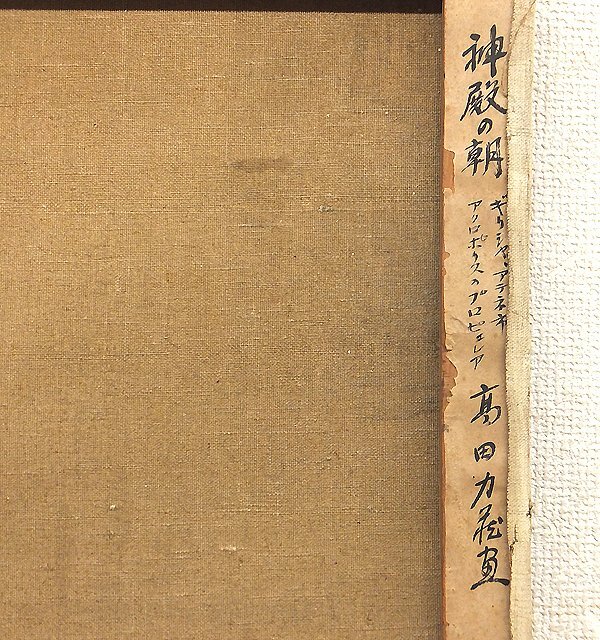 神殿の朝
ギリシャ、アテネ市
アクロポリスのプロピュレア
高田力蔵画